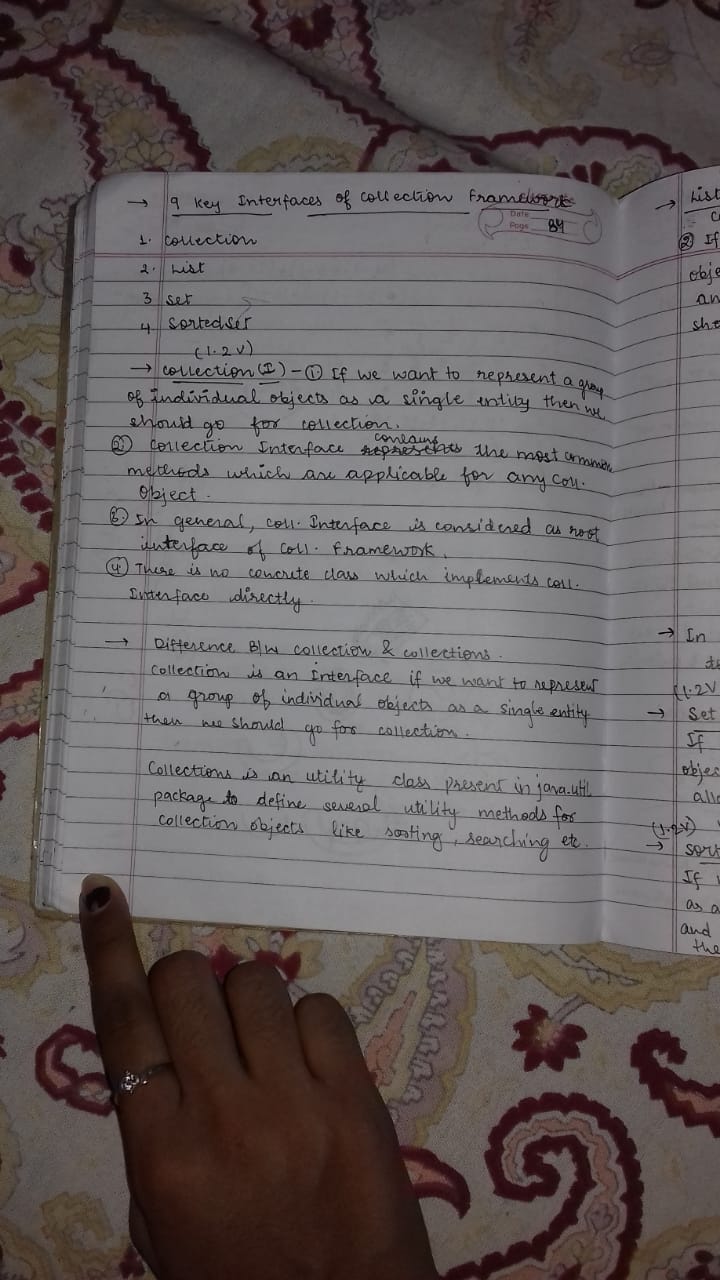 → 9 Key Interfaces of collection Framework
Date
Page 84
1. collection
2. List
3 set
4. sortedset
(1.2 V)
→ collection (I) - ① If we want to represent a group
of individual objects as a single entity then we
should go for collection.
② collection Interface contains the most common
methods which are applicable for any coll.
Object.
③ In general, coll. Interface is considered as root
interface of coll. framework.
④ There is no concrete class which implements coll.
Interface directly.
→ Difference B/w collection & collections.
collection is an Interface if we want to represent
a group of individual objects as a single entity
then we should go for collection.
Collections is an utility class present in java.util
package to define several utility methods for
collection objects like sorting, searching etc.
→ List
② If
obje
an
→ In
(1.2V
→ Set
If
objec
(1.2V)
→ sort
If
as a
and
the